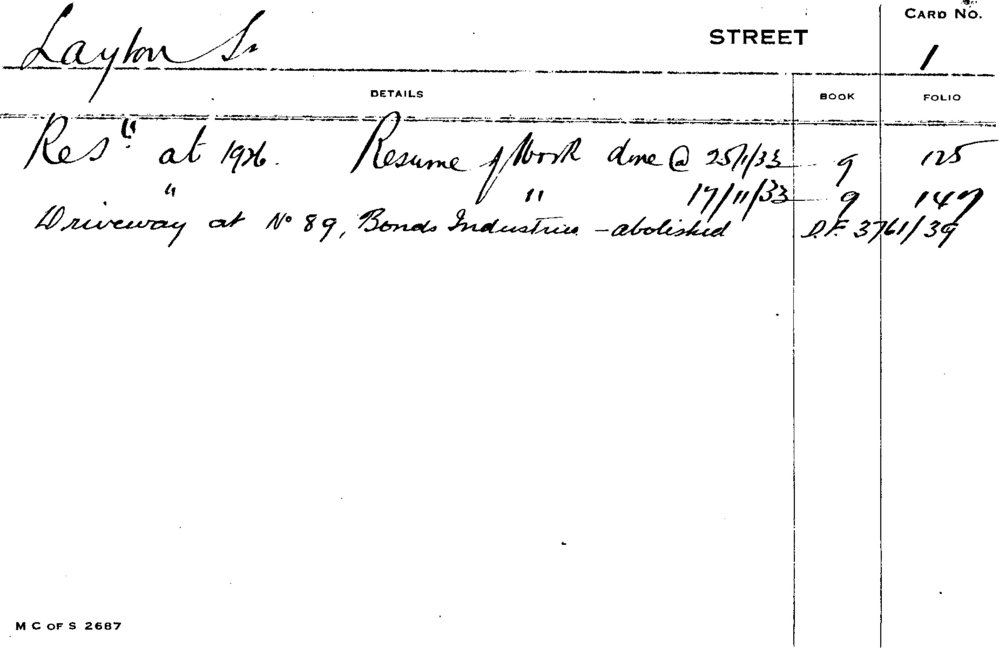 CARD NO.
Layton St STREET 1
DETAILS BOOK FOLIO
Res" at 1926. Resume of Work done @ 25/1/33 9 125
" " 17/11/33 9 147
Driveway at No 89, Bonds Industries - abolished D.F. 3761/39
M C OF S 2687